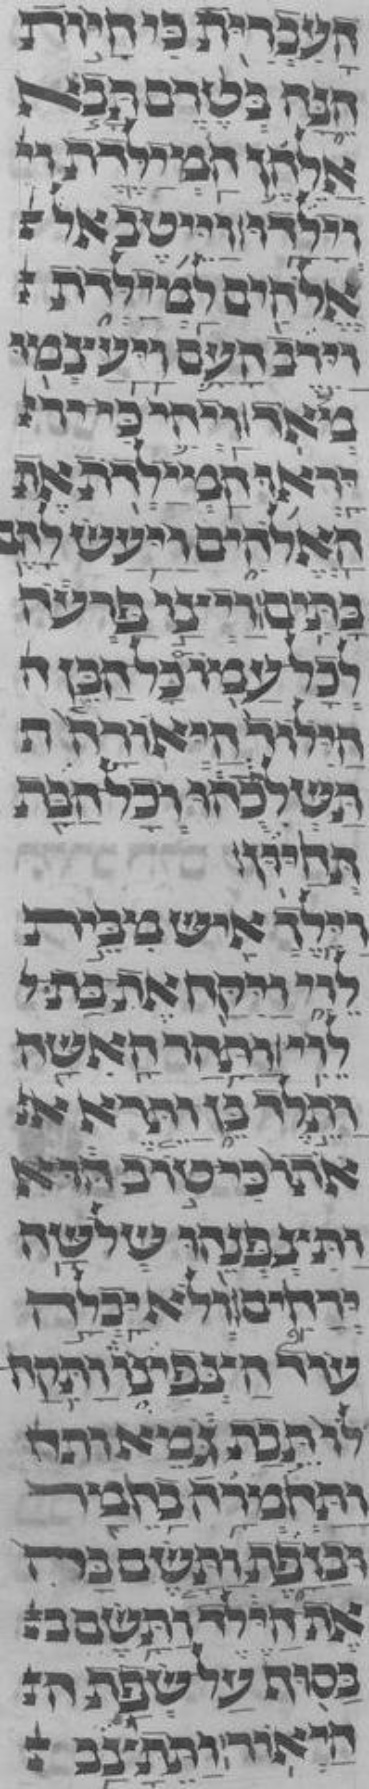 העבריית כי חיות
הנה בטרם תבא
אלהן המילדת וי
וילדו וייטב אל
אלהים למילדת
וירב העם ויעצמו
מאד ויהי כי יר
יראו המילדת את
האלהים ויעש להם
בתים ויצו פרעה
לכל עמו כל הבן ה
הילוד היאורה ת
תשלכהו וכל הבת
תחיון
וילך איש מבית
לוי ויקח את בת ל
לוי ותהר האשה
ותלד בן ותרא א
אתו כי טוב הוא
ותצפנהו שלשה
ירחים ולא יכלה
עוד הצפינו ותקח
לו תבת גמא ותח
ותחמרה בחמר
ובזפת ותשם בה
את הילד ותשם ב
בסוף על שפת ה
היאור ותתיצב